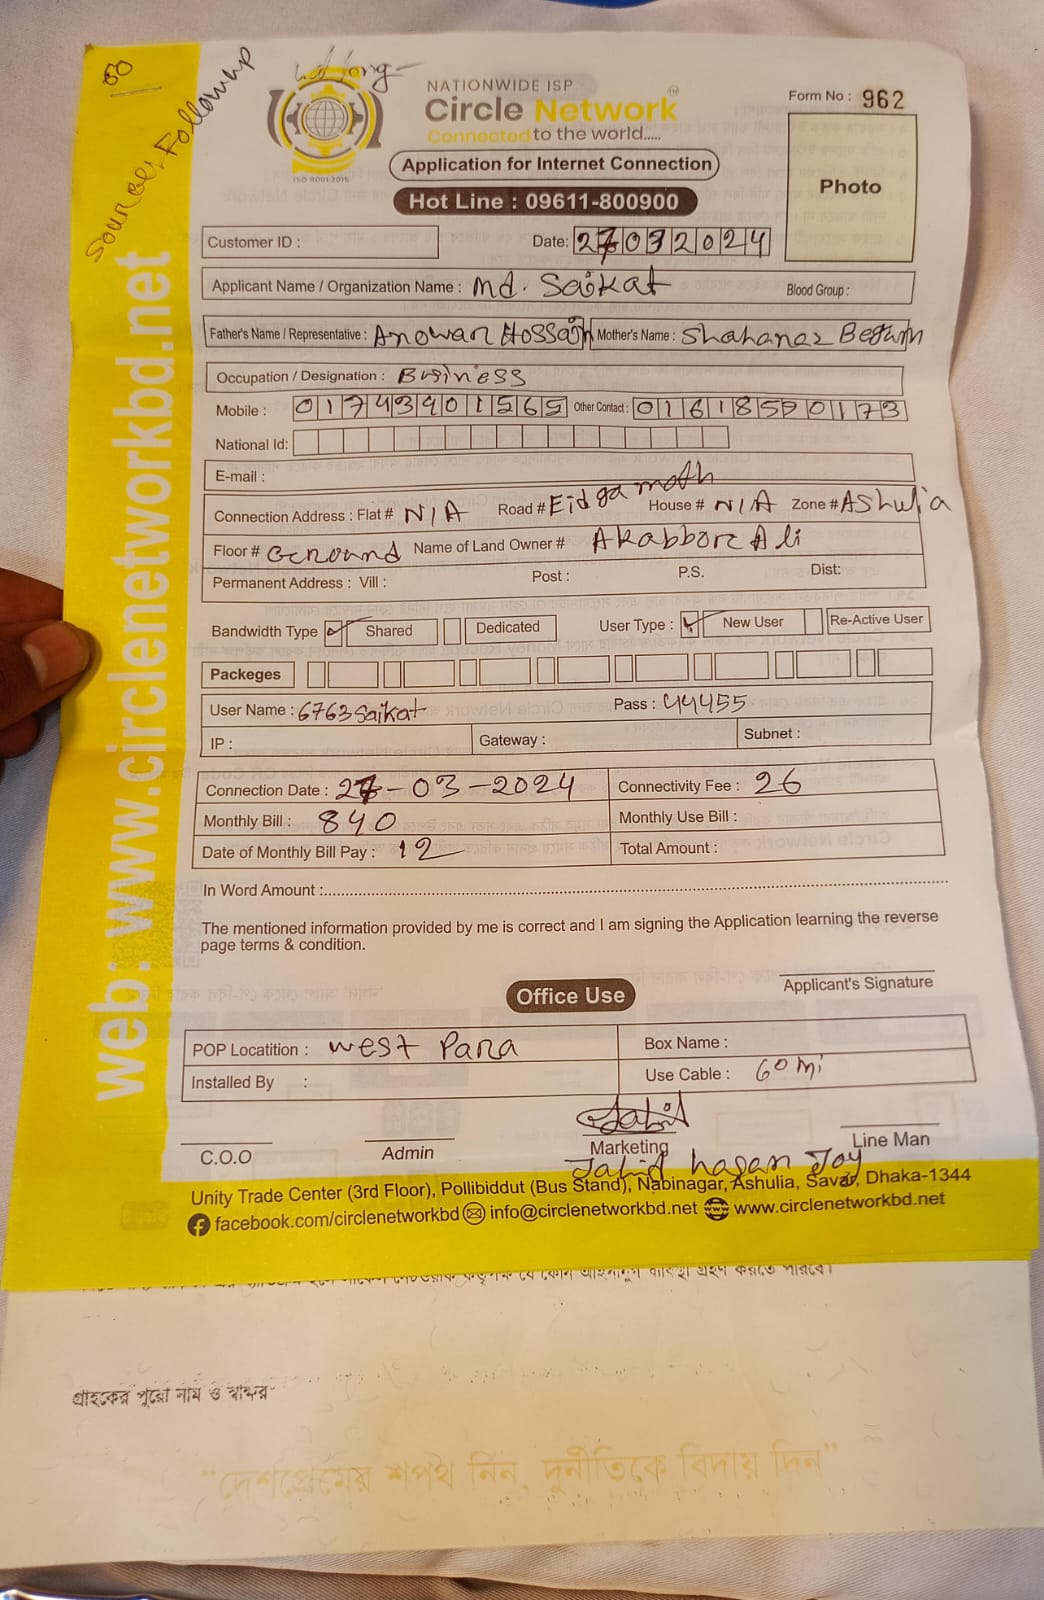 60
Source, Followup
NATIONWIDE ISP
Circle Network
Connected to the world.....
ISO 9001:2015
Form No : 962
Application for Internet Connection
Hot Line : 09611-800900
Photo
Customer ID :
Date: 27032024
Applicant Name / Organization Name : Md. Saikat Blood Group :
Father's Name / Representative : Anowar Hossain Mother's Name : Shahanaz Begum
Occupation / Designation : Business
Mobile : 01743901565 Other Contact : 01618590173
National Id:
E-mail :
Connection Address : Flat # N/A Road # Eidgamath House # N/A Zone # AShulia
Floor # Ground Name of Land Owner # Akabbore Ali
Permanent Address : Vill : Post : P.S. Dist:
Bandwidth Type Shared Dedicated User Type : New User Re-Active User
Packeges
User Name : 6763Saikat Pass : 44455
IP : Gateway : Subnet :
Connection Date : 27-03-2024 Connectivity Fee : 26
Monthly Bill : 840 Monthly Use Bill :
Date of Monthly Bill Pay : 12 Total Amount :
In Word Amount :
The mentioned information provided by me is correct and I am signing the Application learning the reverse
page terms & condition.
Applicant's Signature
Office Use
POP Locatition : West Para Box Name :
Installed By : Use Cable : 60 mi
C.O.O Admin Marketing Line Man
Jahid hasan Joy
Unity Trade Center (3rd Floor), Pollibiddut (Bus Stand), Nabinagar, Ashulia, Savar, Dhaka-1344
facebook.com/circlenetworkbd info@circlenetworkbd.net www.circlenetworkbd.net
web: www.circlenetworkbd.net
গ্রাহকের পুরো নাম ও স্বাক্ষর
“দেশপ্রেমের শপথ নিন, দুর্নীতিকে বিদায় দিন”